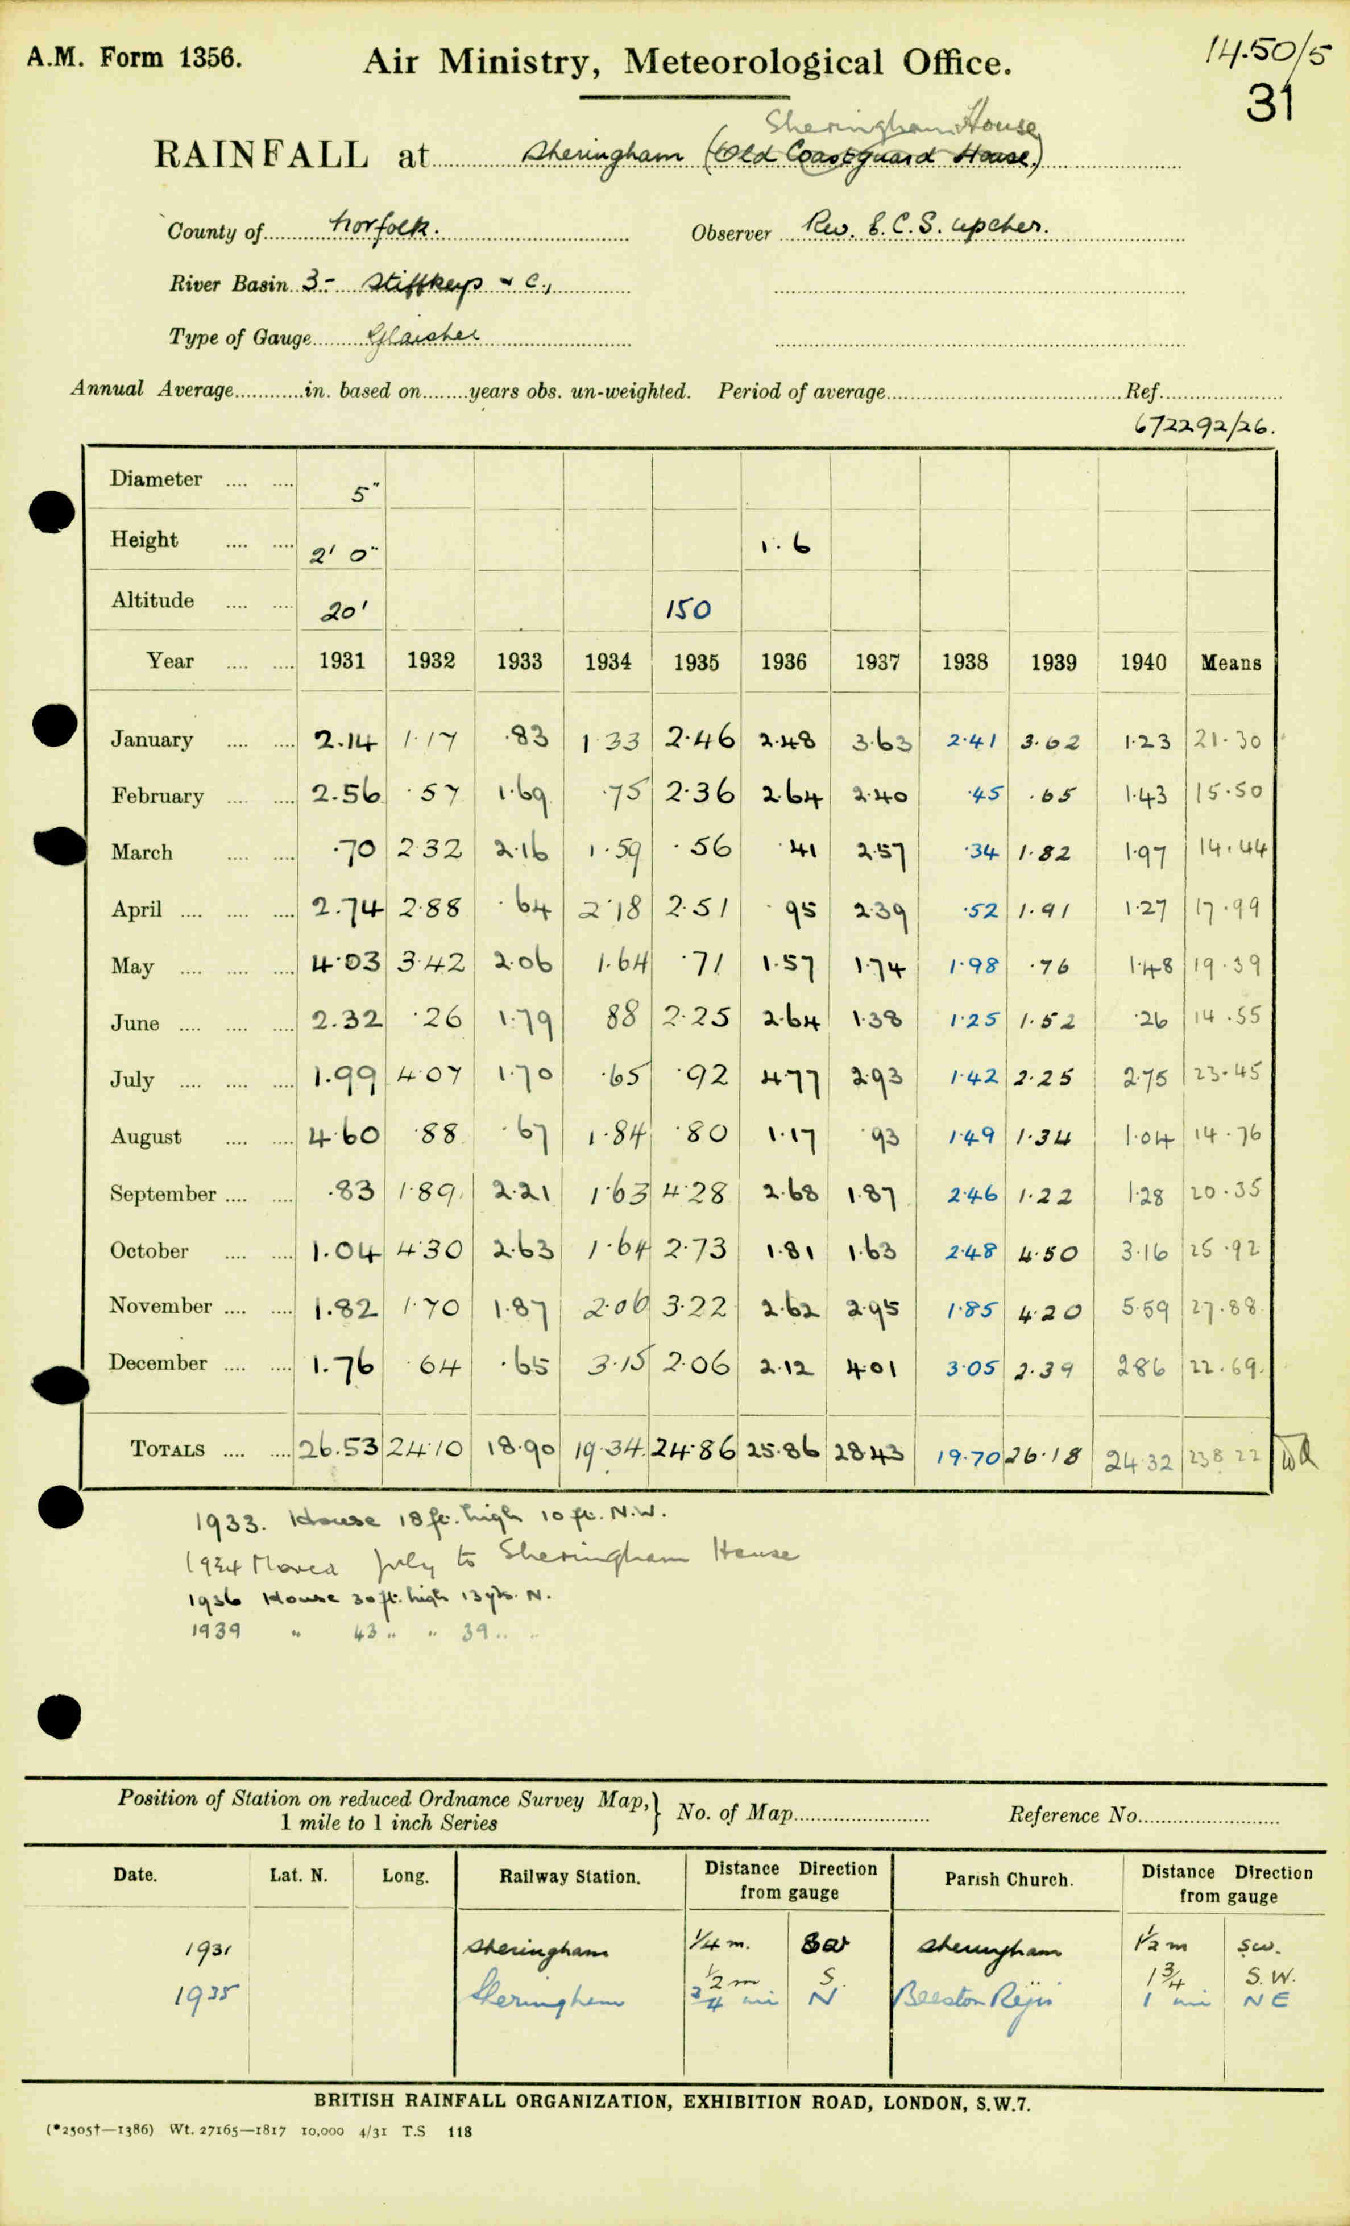 A.M. Form 1356.
Air Ministry, Meteorological Office.
14.50/5
31
Sheringham House
RAINFALL at Sheringham (Old Coastguard House)
County of Norfolk. Observer Rev. E.C.S. Upcher.
River Basin 3- Stiffkey & C.,
Type of Gauge Glaisher
Annual Average in. based on years obs. un-weighted. Period of average Ref.
672292/26.
Diameter .... .... 5"
Height .... .... 2' 0" 1.6
Altitude .... .... 20' 150
Year .... .... 1931 1932 1933 1934 1935 1936 1937 1938 1939 1940 Means
January .... .... 2.14 1.17 .83 1.33 2.46 2.48 3.63 2.41 3.62 1.23 21.30
February .... .... 2.56 .57 1.69 .75 2.36 2.64 2.40 .45 .65 1.43 15.50
March .... .... .70 2.32 2.16 1.59 .56 .41 2.57 .34 1.82 1.97 14.44
April .... .... .... 2.74 2.88 .64 2.18 2.51 .95 2.39 .52 1.91 1.27 17.99
May .... .... .... 4.03 3.42 2.06 1.64 .71 1.57 1.74 1.98 .76 1.48 19.39
June .... .... .... 2.32 .26 1.79 88 2.25 2.64 1.38 1.25 1.52 .26 14.55
July .... .... .... 1.99 4.07 1.70 .65 .92 4.77 2.93 1.42 2.25 2.75 23.45
August .... .... 4.60 .88 .67 1.84 .80 1.17 .93 1.49 1.34 1.04 14.76
September .... .... .83 1.89 2.21 1.63 4.28 2.68 1.87 2.46 1.22 1.28 20.35
October .... .... 1.04 4.30 2.63 1.64 2.73 1.81 1.63 2.48 4.50 3.16 25.92
November .... .... 1.82 1.70 1.87 2.06 3.22 2.62 2.95 1.85 4.20 5.59 27.88
December .... .... 1.76 .64 .65 3.15 2.06 2.12 4.01 3.05 2.39 2.86 22.69
TOTALS .... .... 26.53 24.10 18.90 19.34 24.86 25.86 28.43 19.70 26.18 24.32 238.22
1933. House 18 ft. high 10 ft. N.W.
1934 Moved July to Sheringham House
1936 House 30 ft. high 13 yds. N.
1939 " 43 " " 39 " "
Position of Station on reduced Ordnance Survey Map,} No. of Map Reference No.
1 mile to 1 inch Series
Date. Lat. N. Long. Railway Station. Distance Direction from gauge Parish Church. Distance Direction from gauge
1931 Sheringham 1/4 m. Sheringham 1/2 m SW.
1/2 m S. 1 3/4 S.W.
1935 Sheringham 3/4 mi N Beeston Regis 1 mi NE
BRITISH RAINFALL ORGANIZATION, EXHIBITION ROAD, LONDON, S.W.7.
(*2505†—1386) Wt. 27165—1817 10,000 4/31 T.S 118